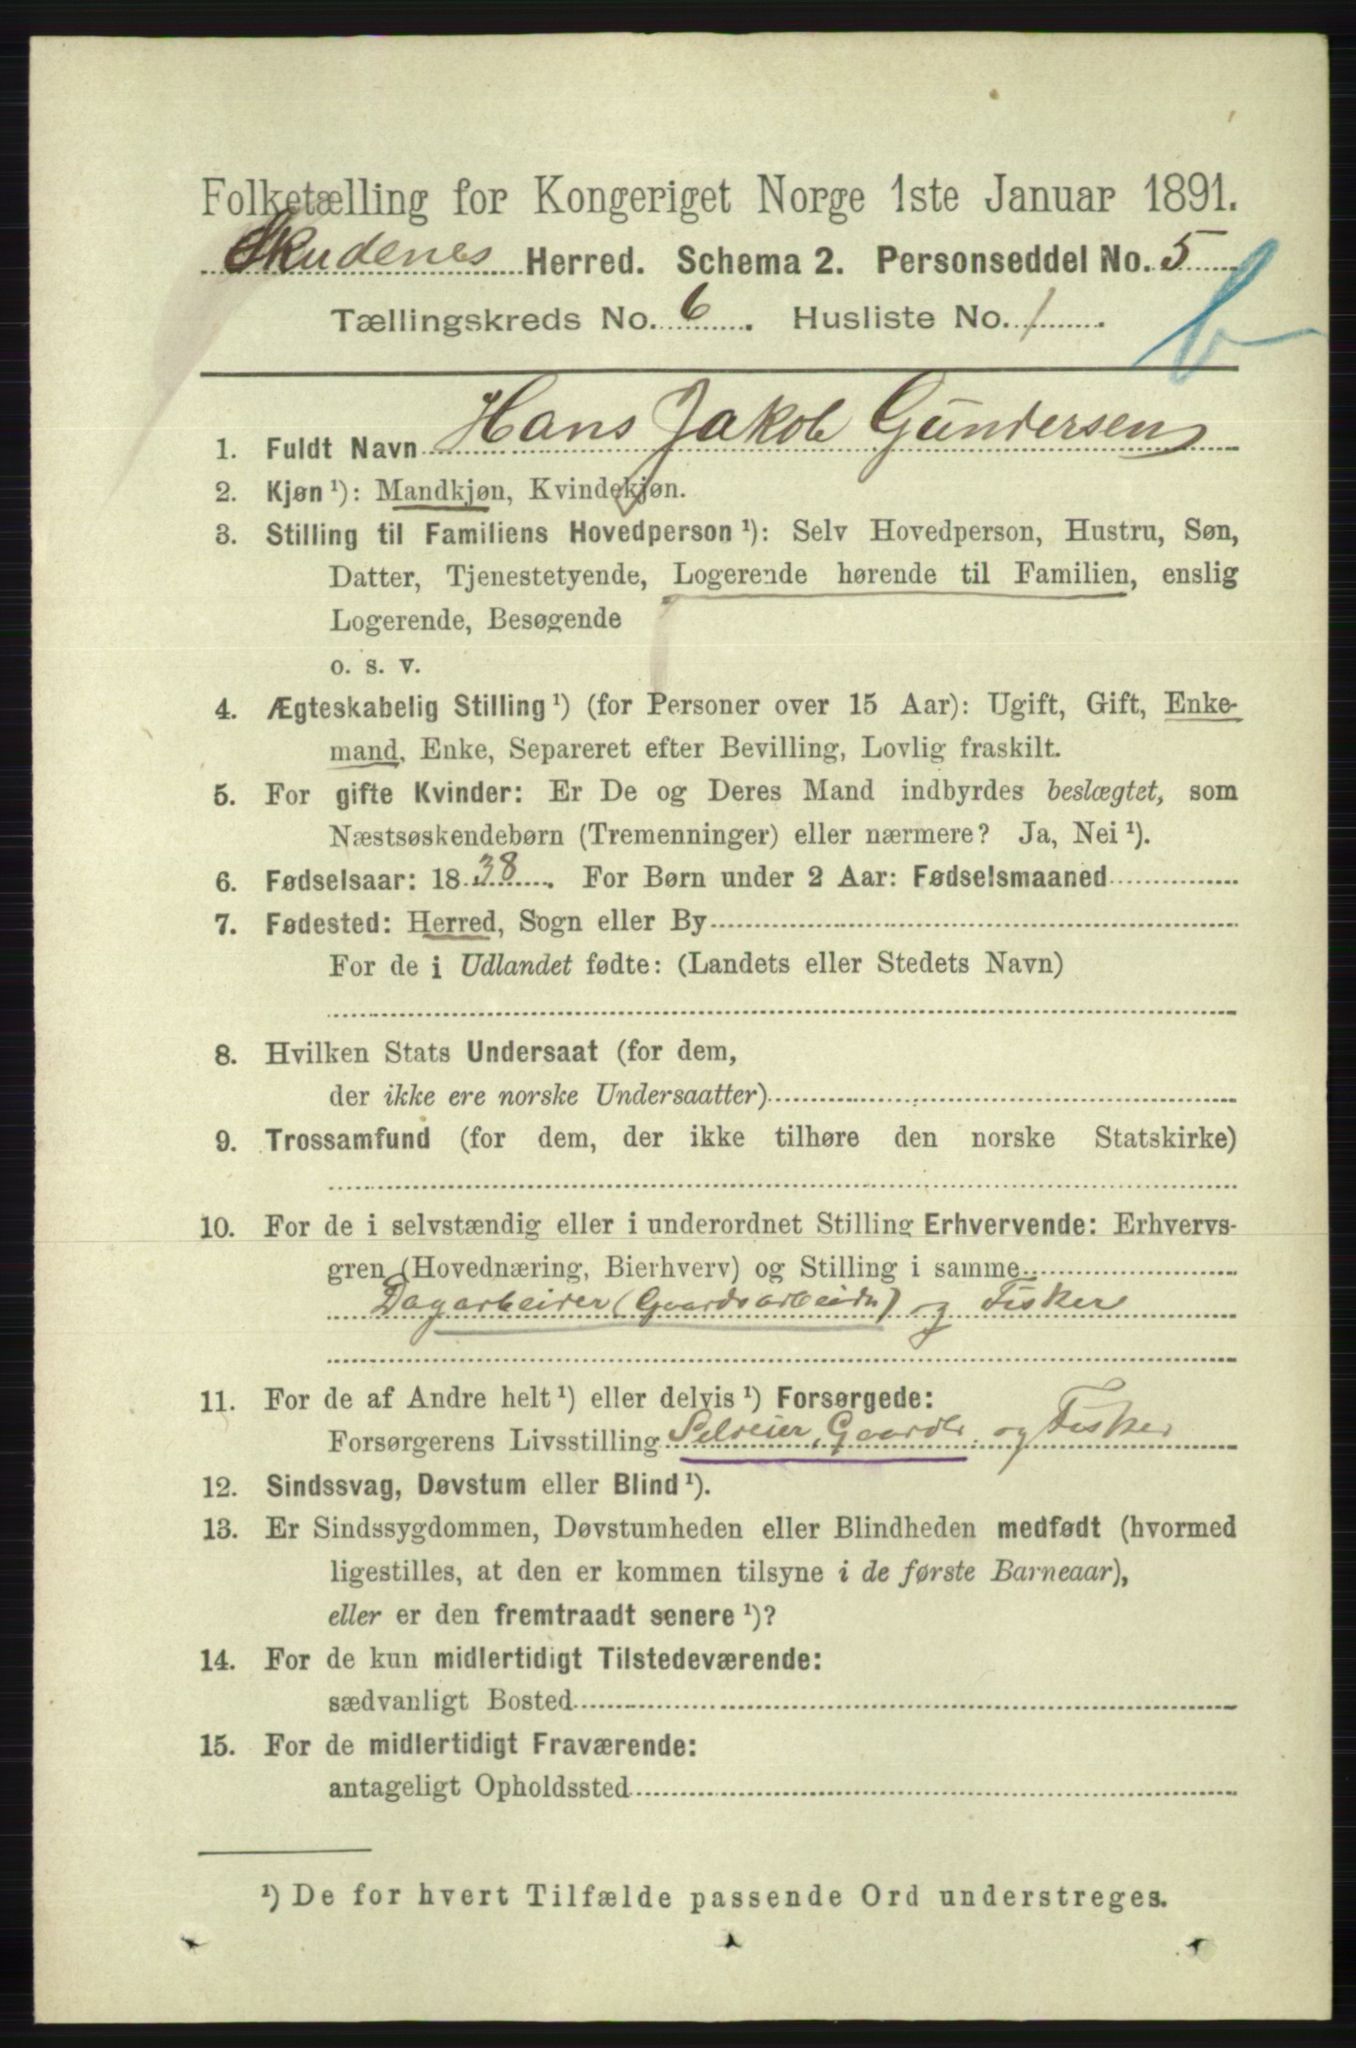 Folketælling for Kongeriget Norge 1ste Januar 1891.
Skudenes Herred. Schema 2. Personseddel No. 5
Tællingskreds No. 6. Husliste No. 1.
b
1. Fuldt Navn Hans Jakob Gundersen
2. Kjøn ¹): Mandkjøn, Kvindekjøn.
3. Stilling til Familiens Hovedperson ¹): Selv Hovedperson, Hustru, Søn,
Datter, Tjenestetyende, Logerende hørende til Familien, enslig
Logerende, Besøgende
o. s. v.
4. Ægteskabelig Stilling ¹) (for Personer over 15 Aar): Ugift, Gift, Enke-
mand, Enke, Separeret efter Bevilling, Lovlig fraskilt.
5. For gifte Kvinder: Er De og Deres Mand indbyrdes beslægtet, som
Næstsøskendebørn (Tremenninger) eller nærmere? Ja, Nei ¹).
6. Fødselsaar: 1838. For Børn under 2 Aar: Fødselsmaaned
7. Fødested: Herred, Sogn eller By
For de i Udlandet fødte: (Landets eller Stedets Navn)
8. Hvilken Stats Undersaat (for dem,
der ikke ere norske Undersaatter)
9. Trossamfund (for dem, der ikke tilhøre den norske Statskirke)
10. For de i selvstændig eller i underordnet Stilling Erhvervende: Erhvervs-
gren (Hovednæring, Bierhverv) og Stilling i samme
Dagarbeider (Gaardsarbeide) og Fisker
11. For de af Andre helt ¹) eller delvis ¹) Forsørgede:
Forsørgerens Livsstilling Selveier, Gaardbr. og Fisker
12. Sindssvag, Døvstum eller Blind ¹).
13. Er Sindssygdommen, Døvstumheden eller Blindheden medfødt (hvormed
ligestilles, at den er kommen tilsyne i de første Barneaar),
eller er den fremtraadt senere ¹)?
14. For de kun midlertidigt Tilstedeværende:
sædvanligt Bosted
15. For de midlertidigt Fraværende:
antageligt Opholdssted
¹) De for hvert Tilfælde passende Ord understreges.